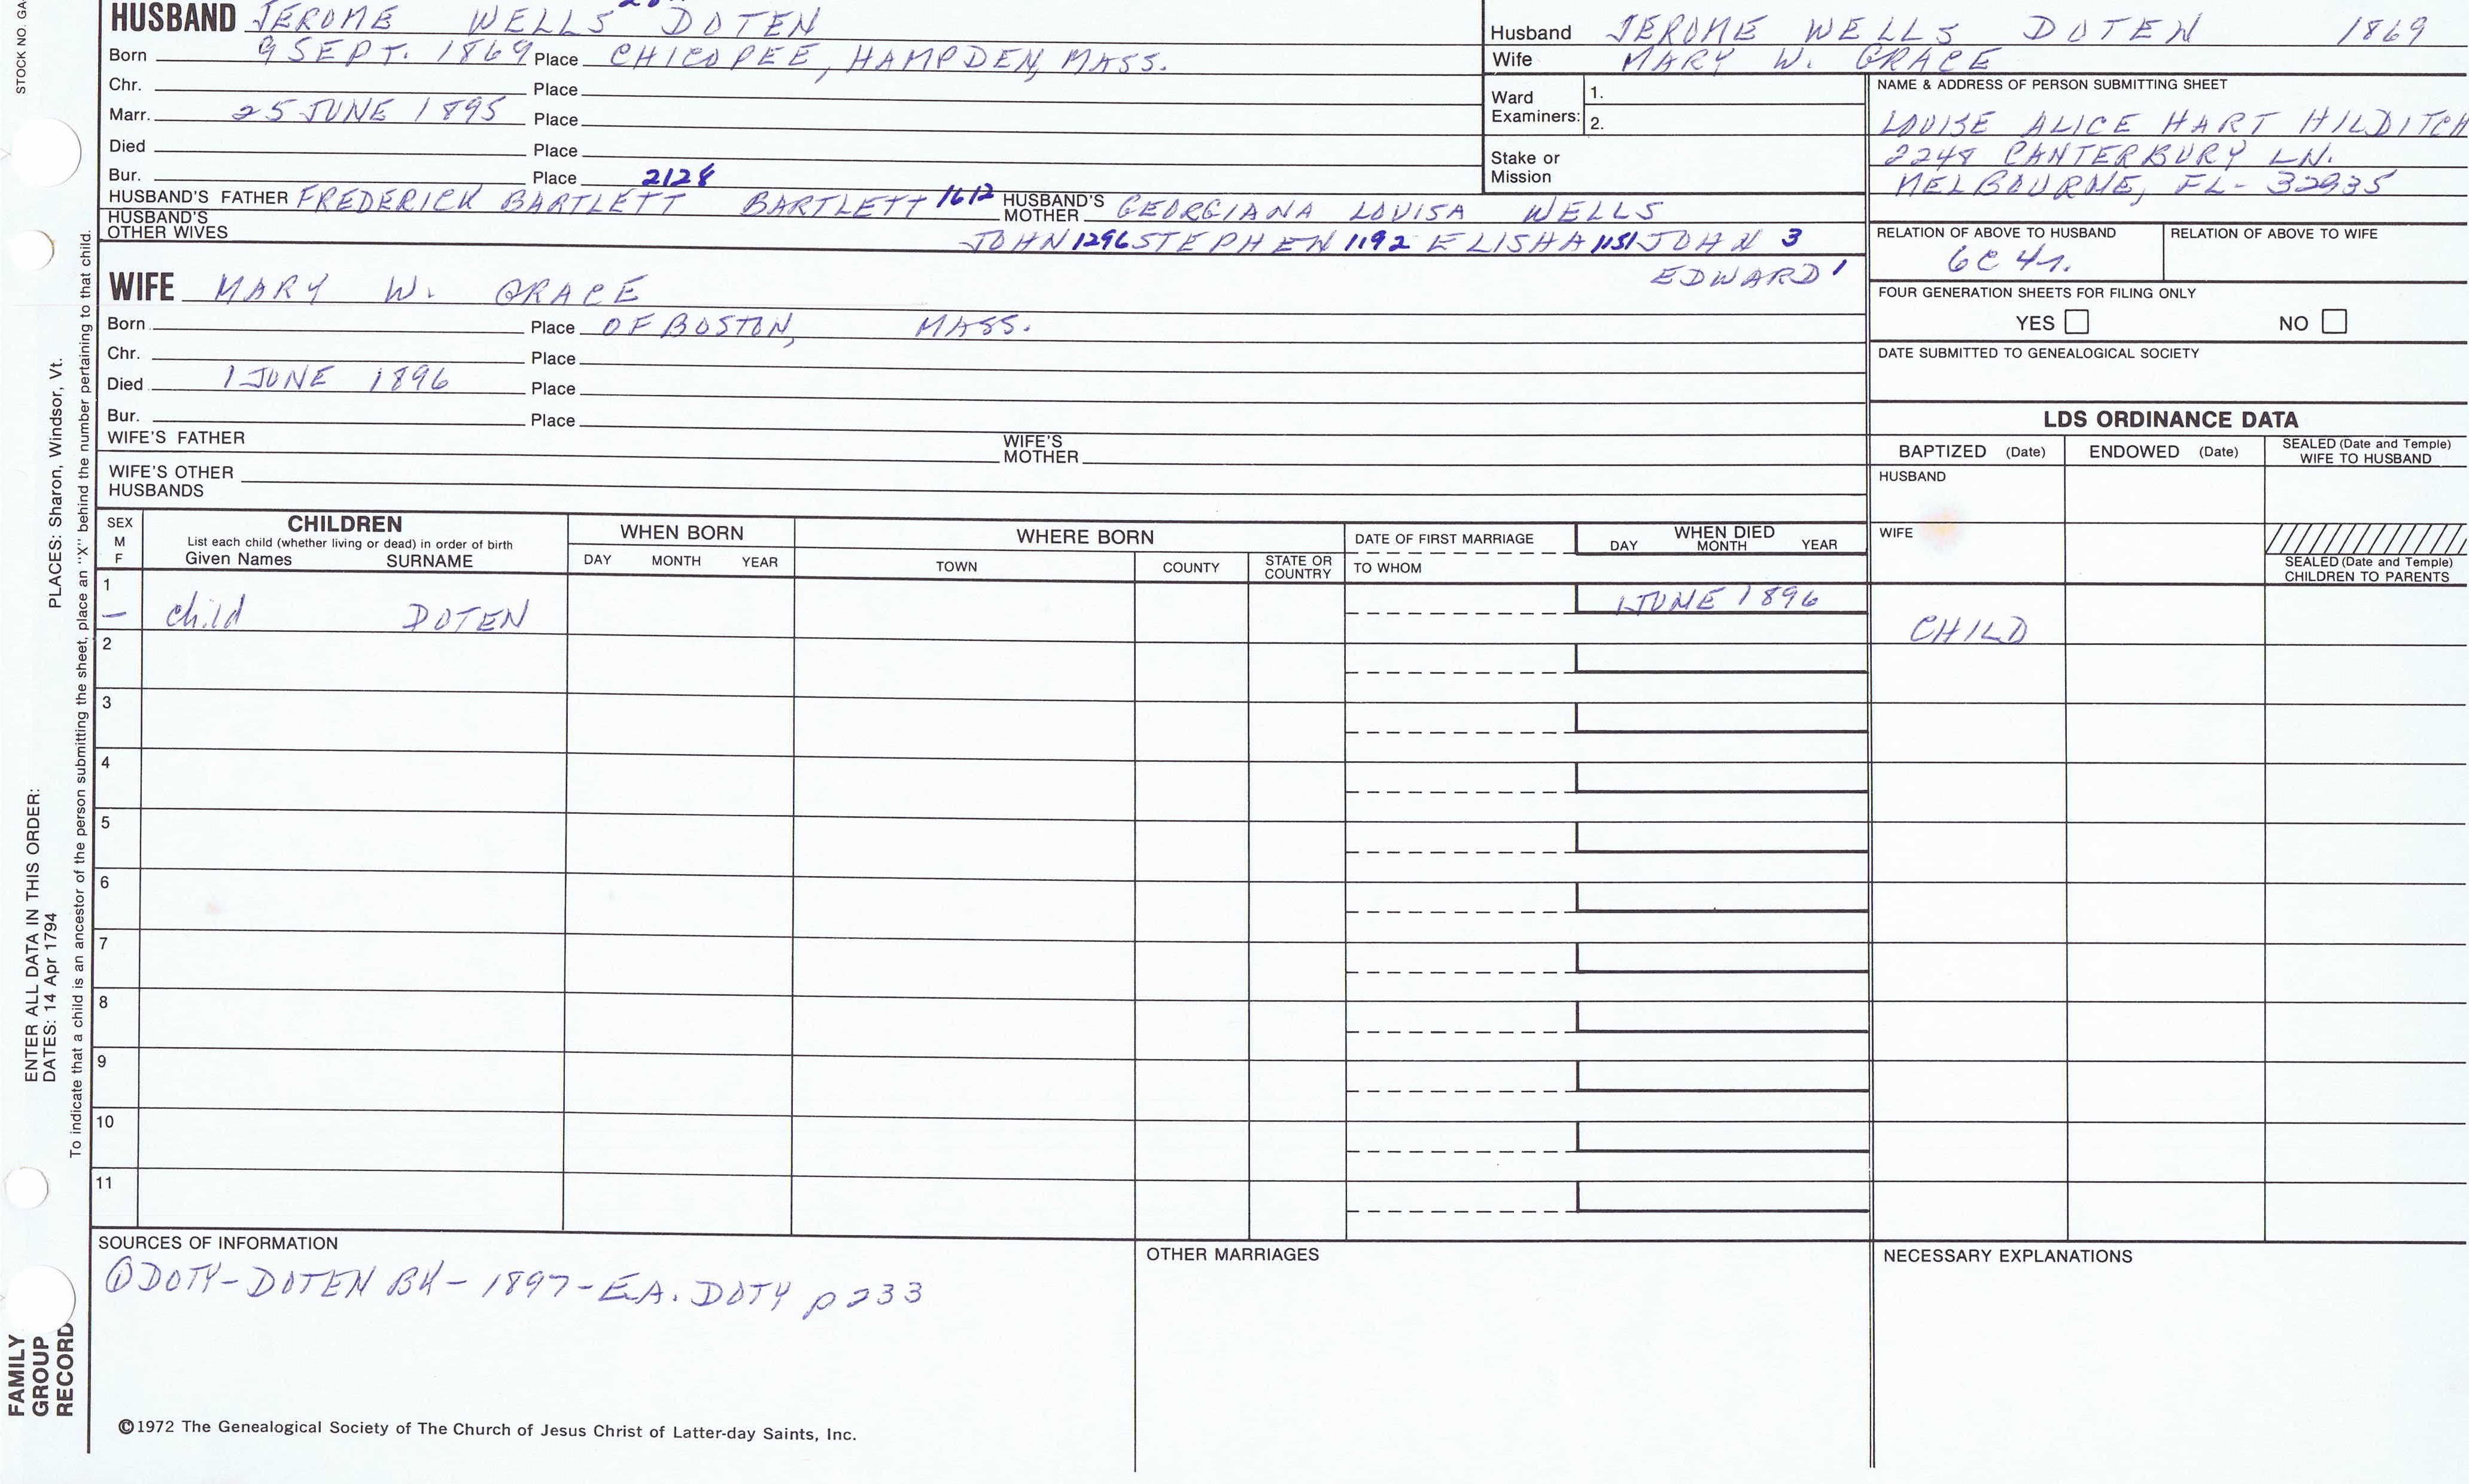 STOCK NO. GA
HUSBAND JEROME WELLS DOTEN
Born 9 SEPT. 1869 Place CHICOPEE, HAMPDEN, MASS.
Chr. Place
Marr. 25 JUNE 1895 Place
Died Place
Bur. Place 2128
HUSBAND'S FATHER FREDERICK BARTLETT BARTLETT 1612 HUSBAND'S MOTHER GEORGIANA LOUISA WELLS
HUSBAND'S OTHER WIVES JOHN 1296 STEPHEN 1192 ELISHA 1151 JOHN 3
EDWARD 1
WIFE MARY W. GRACE
Born Place OF BOSTON, MASS.
Chr. Place
Died 1 JUNE 1896 Place
Bur. Place
WIFE'S FATHER WIFE'S MOTHER
WIFE'S OTHER HUSBANDS
Husband JEROME WELLS DOTEN 1869
Wife MARY W. GRACE
Ward Examiners: 1.
2.
Stake or Mission
NAME & ADDRESS OF PERSON SUBMITTING SHEET
LOUISE ALICE HART HILDITCH
2248 CANTERBURY LN.
MELBOURNE, FL- 32935
RELATION OF ABOVE TO HUSBAND RELATION OF ABOVE TO WIFE
6C 4r.
FOUR GENERATION SHEETS FOR FILING ONLY
YES NO
DATE SUBMITTED TO GENEALOGICAL SOCIETY
LDS ORDINANCE DATA
BAPTIZED (Date) ENDOWED (Date) SEALED (Date and Temple) WIFE TO HUSBAND
HUSBAND
WIFE
SEALED (Date and Temple) CHILDREN TO PARENTS
SEX M F CHILDREN WHEN BORN WHERE BORN DATE OF FIRST MARRIAGE WHEN DIED
List each child (whether living or dead) in order of birth
Given Names SURNAME DAY MONTH YEAR TOWN COUNTY STATE OR COUNTRY TO WHOM DAY MONTH YEAR
1 1 JUNE 1896
— child DOTEN CHILD
2
3
4
5
6
7
8
9
10
11
SOURCES OF INFORMATION
① DOTY-DOTEN BK- 1897- E.A. DOTY p 233
OTHER MARRIAGES
NECESSARY EXPLANATIONS
©1972 The Genealogical Society of The Church of Jesus Christ of Latter-day Saints, Inc.
ENTER ALL DATA IN THIS ORDER:
DATES: 14 Apr 1794 PLACES: Sharon, Windsor, Vt.
To indicate that a child is an ancestor of the person submitting the sheet, place an "X" behind the number pertaining to that child.
FAMILY
GROUP
RECORD